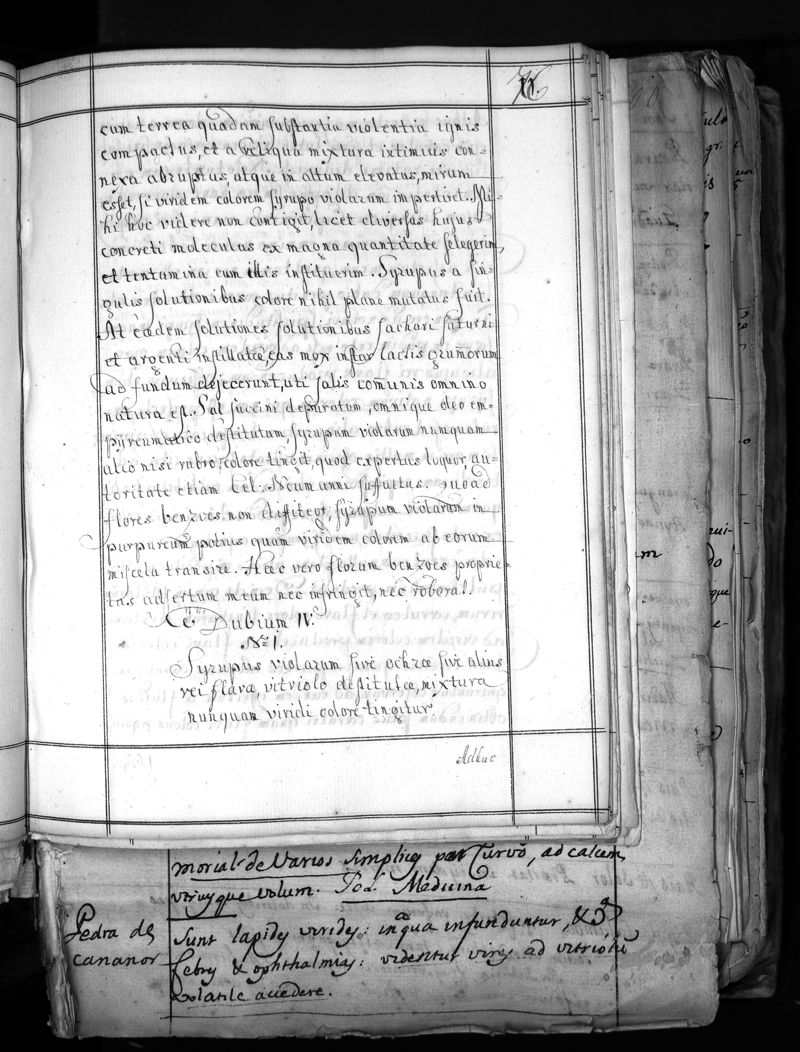 11.
cum terrea quadam substantia violentia ignis
compactus, et a reliqua mixtura intimius con=
nexa abruptus, atque in altum elevatus, mirum
esset, si viridem colorem syrupo violarum impertiret. Mi-
hi hoc videre non contigit, licet diversas hujus
concreti moleculas ex magna quantitate selegerim,
et tentamina cum illis instituerim. Syrupus a sin-
gulis solutionibus colore nihil plane mutatus fuit.
At eadem solutiones solutionibus sachari saturni
et argenti instillatæ, eas mox instar lactis grumorum
ad fundum dejecerunt, uti salis comunis omnino
natura est. Sal succini depuratum, omnique oleo em-
pyreumatico destitutum, syrupum violarum nunquam
alio nisi rubro colore tingit, quod expertus loquor, au-
toritate etiam Cel: Neumanni suffultus. Quoad
flores benzoes, non diffiteor, syrupum violarum in
purpureum potius quam viridem colorem ab eorum
miscela transire. Hæc vero florum benzoes proprie-
tas adsertum meum nec infringit, nec roborat.
Dubium IV.
No. 1.
Syrupus violarum sive ochræ sive alius
rei flava, vitriolo destitulæ, mixtura
nunquam viridi colore tingitur
Adhuc
morial de Varios simplices par Curvo, ad calcem
utriusque volum. Pol. Medicina
Pedra de
cananor
Sunt lapides virides: in qua infunduntur, &
febry & ophthalmias: videntur vires ad vitriolū
volatile accedere.